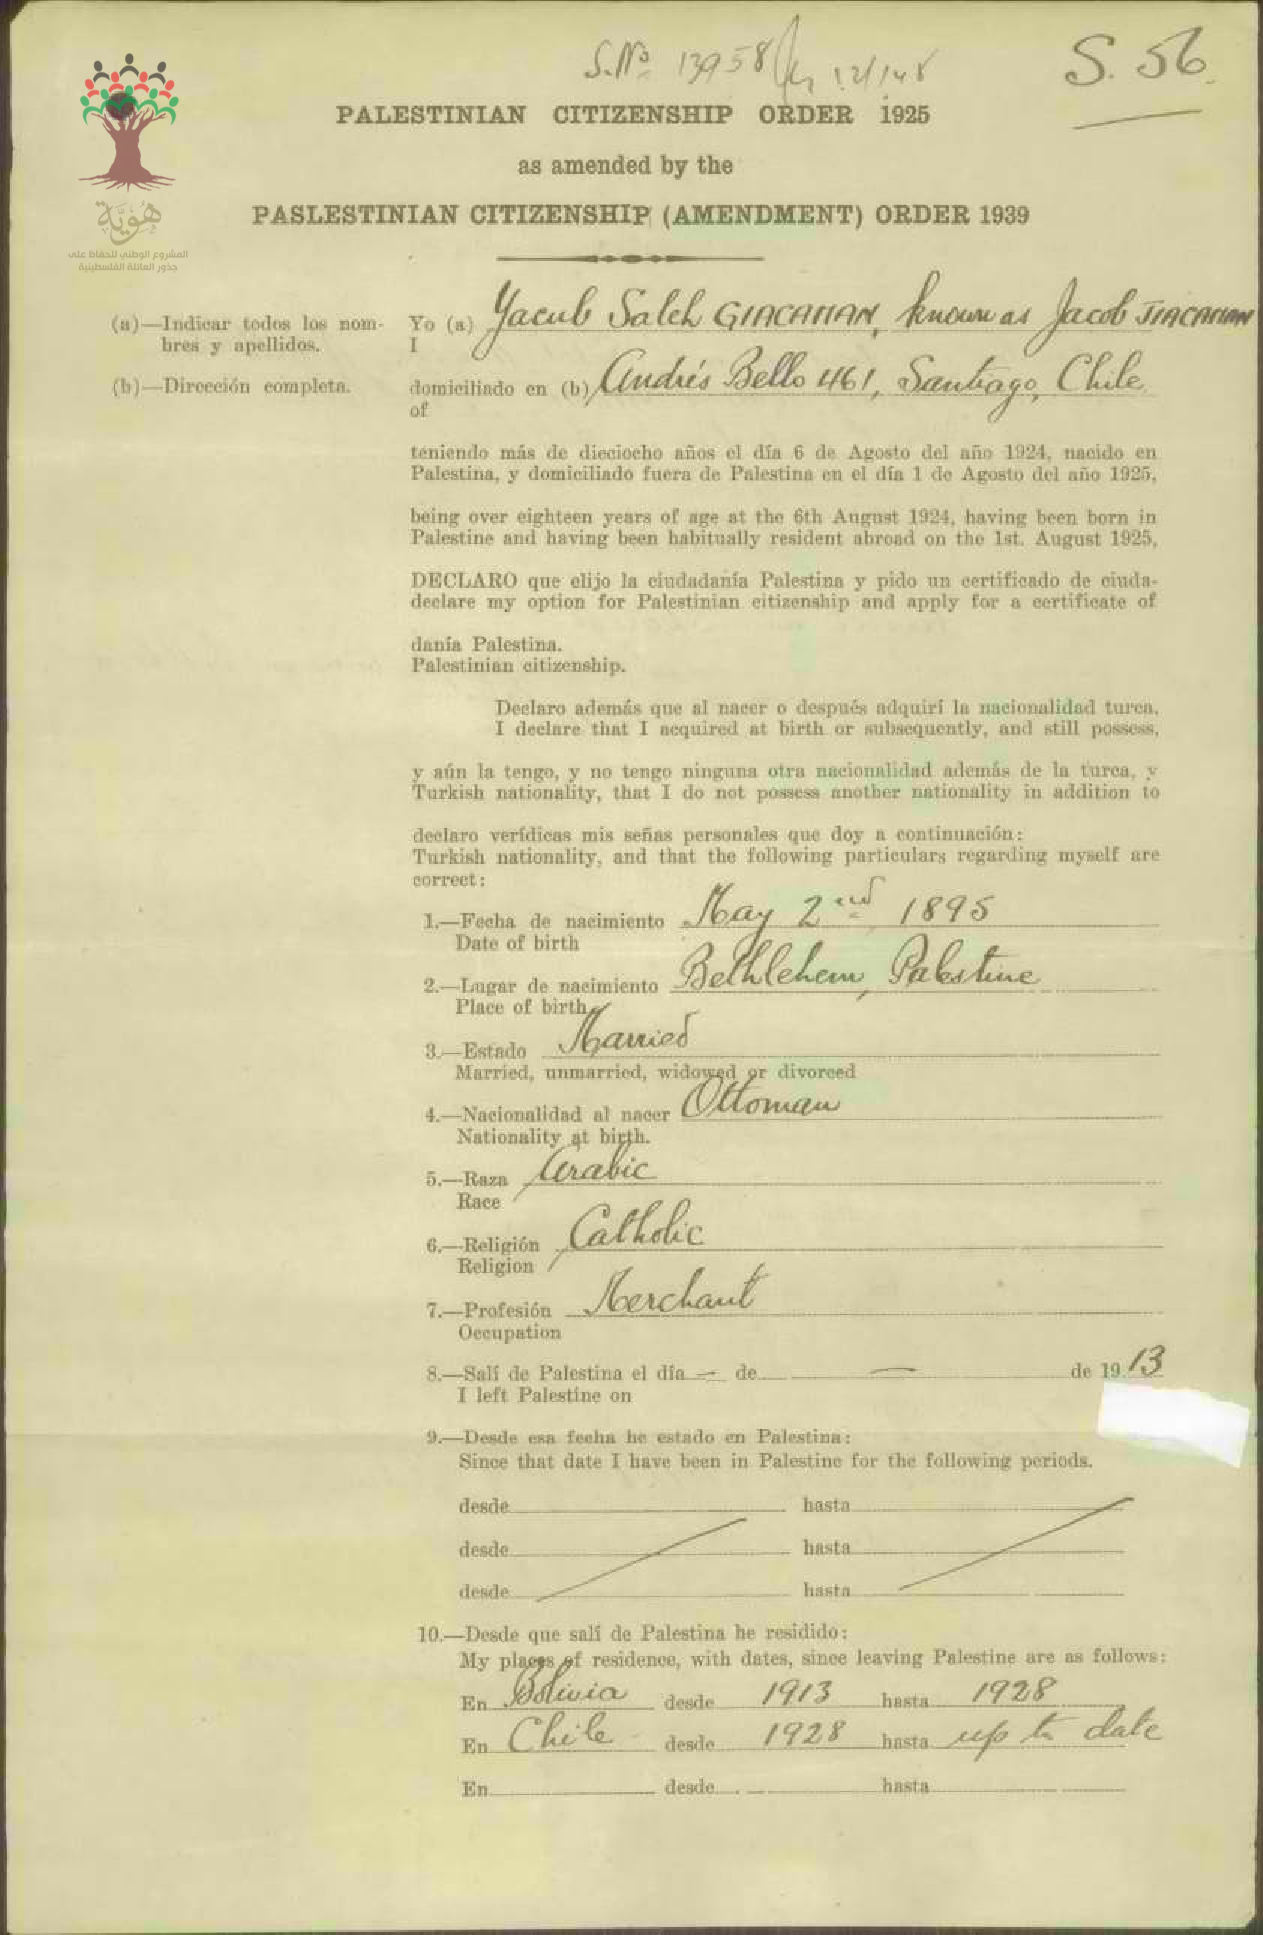 S.No 13958
S. 56
هوية
المشروع الوطني للحفاظ على
جذور العائلة الفلسطينية
PALESTINIAN CITIZENSHIP ORDER 1925
as amended by the
PASLESTINIAN CITIZENSHIP (AMENDMENT) ORDER 1939
(a)—Indicar todos los nom-
bres y apellidos.
Yo (a) Yacub Saleh GIACAMAN, known as Jacob JIACAMAN
I
(b)—Dirección completa.
domiciliado en (b) Andrés Bello 461, Santiago, Chile
of
teniendo más de dieciocho años el día 6 de Agosto del año 1924, nacido en
Palestina, y domiciliado fuera de Palestina en el día 1 de Agosto del año 1925,
being over eighteen years of age at the 6th August 1924, having been born in
Palestine and having been habitually resident abroad on the 1st. August 1925,
DECLARO que elijo la ciudadanía Palestina y pido un certificado de ciuda-
declare my option for Palestinian citizenship and apply for a certificate of
danía Palestina.
Palestinian citizenship.
Declaro además que al nacer o después adquirí la nacionalidad turca,
I declare that I acquired at birth or subsequently, and still possess,
y aún la tengo, y no tengo ninguna otra nacionalidad además de la turca, y
Turkish nationality, that I do not possess another nationality in addition to
declaro verídicas mis señas personales que doy a continuación:
Turkish nationality, and that the following particulars regarding myself are
correct:
1.—Fecha de nacimiento May 2nd 1895
Date of birth
2.—Lugar de nacimiento Bethlehem, Palestine
Place of birth
3.—Estado Married
Married, unmarried, widowed or divorced
4.—Nacionalidad al nacer Ottoman
Nationality at birth.
5.—Raza Arabic
Race
6.—Religión Catholic
Religion
7.—Profesión Merchant
Occupation
8.—Salí de Palestina el día — de — de 1913
I left Palestine on
9.—Desde esa fecha he estado en Palestina:
Since that date I have been in Palestine for the following periods.
desde hasta
desde hasta
desde hasta
10.—Desde que salí de Palestina he residido:
My places of residence, with dates, since leaving Palestine are as follows:
En Bolivia desde 1913 hasta 1928
En Chile desde 1928 hasta up to date
En desde hasta